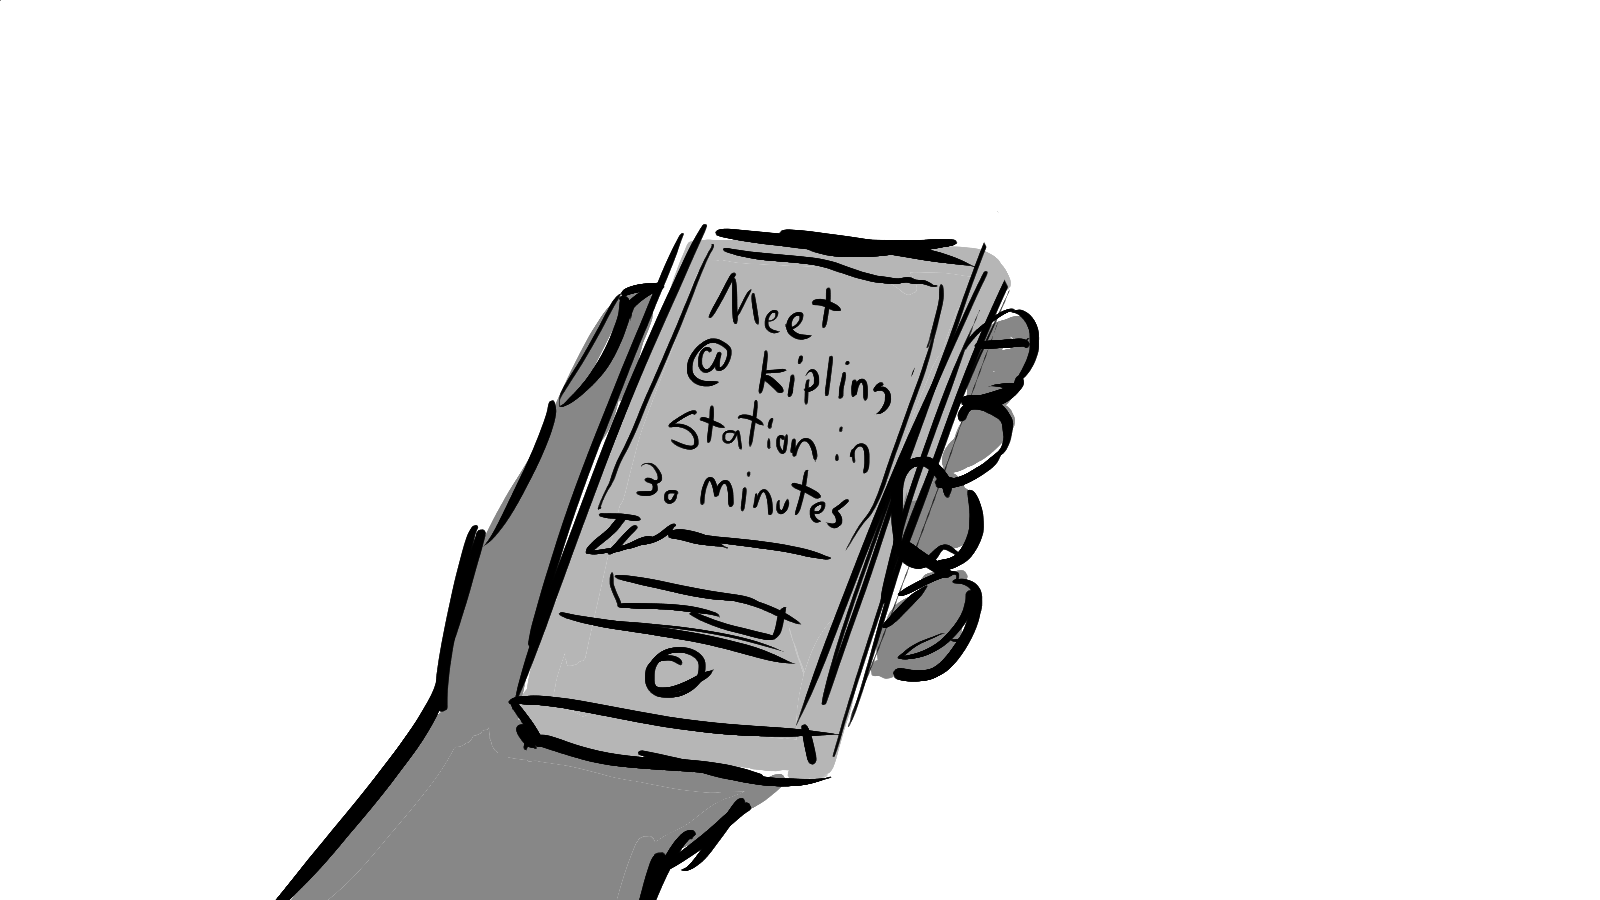 Meet
@ kipling
Station in
30 minutes